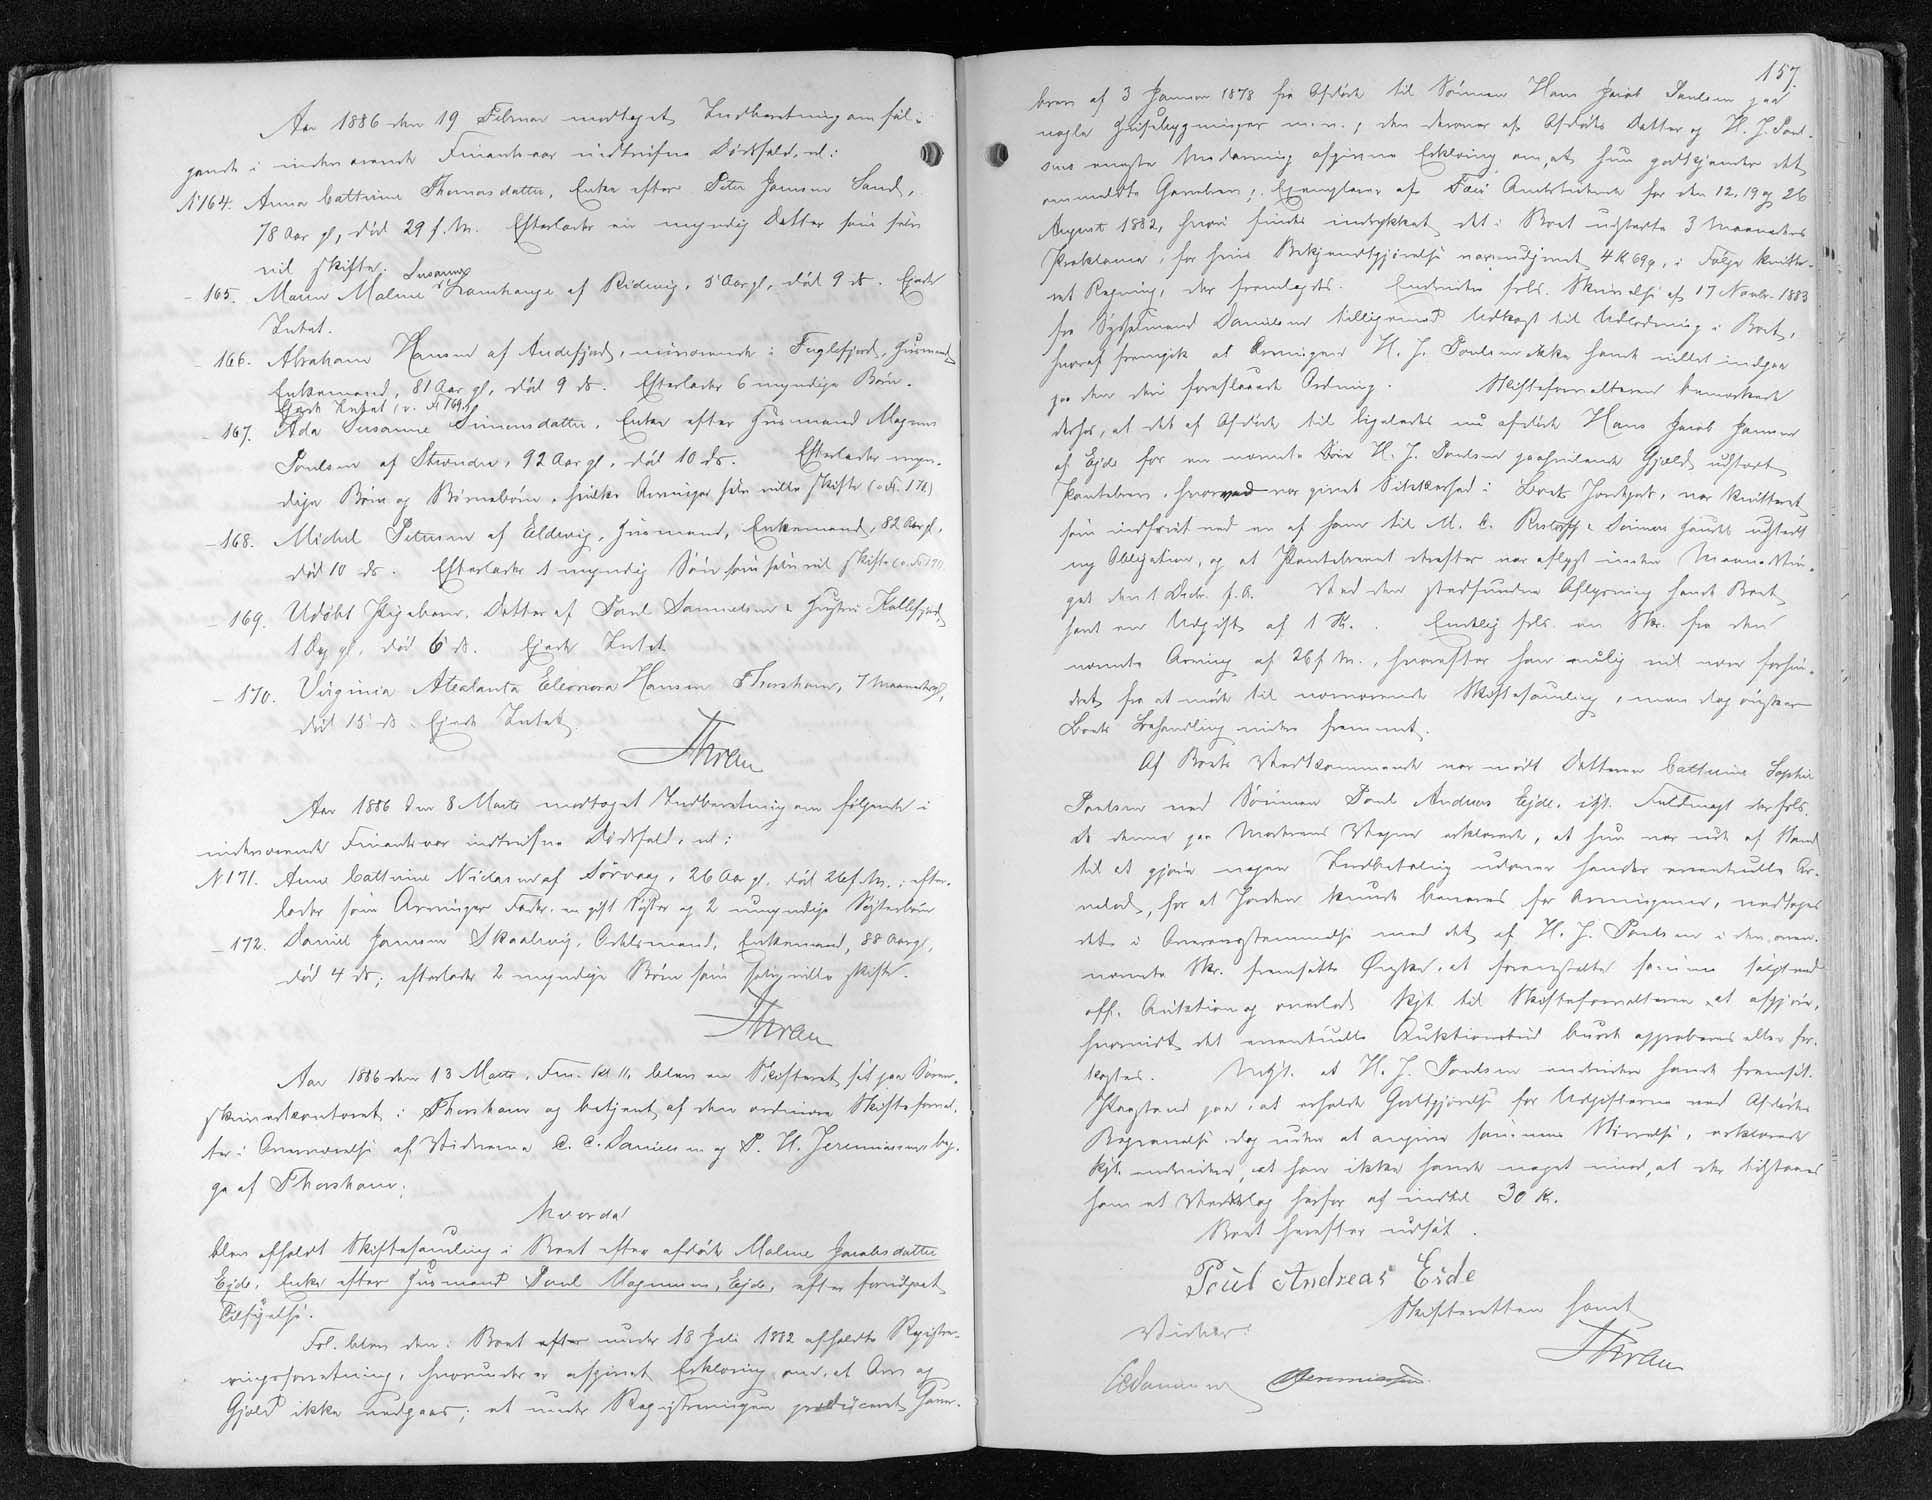 Aar 1886 den 19 Februar modtaget Indberetning om føl-
gende i inderværende Finantsaar indtrufne Dødsfald, nl:
N 164. Anna Cattrine Thomasdatter, Enke efter Peter Jansen Sand,
78 Aar gl, død 29 f. M. Efterlader en myndig Datter som selv
vil skifte.
- 165. Maren Malene Susanna af Ridevig, 5 Aar gl, død 9 ds. Ejede
Intet.
- 166. Abraham Hansen af Andefjord, nuværende i Fuglefjord, Huusmand
Enkemand, 81 Aar gl, død 9 ds. Efterlader 6 myndige Børn.
Ejede Intet
- 167. Ada Susanne Simonsdatter, Enke efter Huusmand Magnus
Poulsen af Strender, 92 Aar gl, død 10 ds. Efterlader myn-
dige Børn og Børnebørn, hvilke Arvinger selv ville skifte
- 168. Michel Petersen af Eldevig, Huusmand, Enkemand, 82 Aar gl,
død 10 ds. Efterlader 1 myndig Søn som selv vil skifte
- 169. Udøbt Pigebarn, Datter af Poul Samuelsen & Hustru Kollefjord,
1 Dag gl, død 6 ds. Ejede Intet
- 170. Virginia Atealanta Eleonora Hansen Thorshavn, 7 Maaneder gl,
død 15 ds. Ejede Intet.
Aar 1886 den 8 Marts modtaget Indberetning om følgende i
inderværende Finantsaar indtrufne Dødsfald, nl:
N 171. Anne Cattrine Niclasen af Sørvaag, 26 Aar gl. død 26 f. M.; efter-
lader som Arvinger Fader, en gift Søster og 2 umyndige Søsterbørn
- 172. Daniel Jansen Skaalevig, Odelsmand, Enkemand, 88 Aar gl,
død 4 ds; efterlader 2 myndige Børn som selv ville skifte.
Aar 1886 den 13 Marts, Fm. Kl 11, blev en Skifteret sat paa Soren-
skriverkontoret i Thorshavn og betjent af den ordinære Skifteforval-
ter i Overværelse af Vidnerne C. C. Danielsen og P. H. Jeremiassen, beg-
ge af Thorshavn;
Hvorda
blev afholdt Skiftesamling i Boet efter afdøde Malene Jacobsdatter
Ejde, Enke efter Huusmand Poul Magnussen, Ejde, efter forudgaaet
Tilsigelse.
Fol. blev den i Boet under 18 Juli 1882 afholdte Registre-
ringsforretning, hvorunder er afgivet Erklæring om, at Arv og
Gjæld ikke vedgaaes; et under Registreringen produceret Gave-
157.
brev af 3 Januar 1878 fra Afdøde til Sønnen Hans Jacob Poulsen paa
nogle Huusbygninger m. v.; den derover af Afdødes Datter og H. J. Poul-
sens eneste Medarving afgivne Erklæring om, at hun godkjender det
ommeldte Gavebrev; Exemplarer af Færø Amtstidende for den 12, 19 og 26
August 1882, hvori findes indrykket det i Boet udstedte 3 Maaneders
Proklama, for hvis Bekjendtgjørelse var udgivet 4 K 69 ø, i Følge kvitte-
ret Regning, der fremlagdes. Endvidere fols. Skrivelse af 17 Novbr. 1883
fra Sysselmand Danielsen tilligemed Udkast til Udlodning i Boet,
hvoraf fremgik at Arvingen H. J. Poulsen ikke havde villet indgaa
paa den deri foreslaaede Ordning. Skifteforvalteren bemærkede
derhos, at det af Afdøde til ligeledes nu afdøde Hans Jacob Jansen
af Ejde for en nævnte Søn H. J. Poulsen paahvilende Gjæld udstedte
Pantebrev, hvorved var givet Sikkerhed i Boets Jordgods, var kvitteret
som indfriet ved en af ham til M. C. Restorff & Sønners Handel udstedt
ny Obligation, og at Pantebrevet derefter var aflyst inden
get den 1 Decbr. f. A. Ved den stedfundne Aflysning havde Boet
havt en Udgift af 1 K. Endelig fols. en Skr. fra den
nævnte Arving af 26 f. M., hvorefter han mulig vil være forhin-
dret fra at møde til nærværende Skiftesamling, men dog ønsker
Boets Behandling videre fremmet.
Af Boets Vedkommende var mødt Datteren Cattrine Sophie
Poulsen ved Sønnen Poul Andreas Ejde, ifl. Fuldmagt der fols.
da denne paa Moderens Vegne erklærede, at hun var ude af Stand
til at gjøre nogen Indbetaling udover hendes eventuelle Ar-
velod, for at Jorden kunde bevares for Arvingerne, vedtoges
det i Overensstemmelse med det af H. J. Poulsen i den oven-
nævnte Skr. fremsatte Ønske, at foranstalte samme solgt ved
off. Auktion og overlod Kpt. til Skifteforvalteren at afgjøre,
hvorvidt det eventuelle Auktionsbud burde approberes eller for-
kastes. Uagt. at H. J. Poulsen endvidere havde fremsat
Paastand paa at erholde Godtgjørelse for Udgifterne ved Afdødes
Begravelse dog uden at angive sammes Størrelse, erklærede
Kpt. endvidere, at han ikke havde noget imod, at der tilstaaes
ham et Vederlag herfor af indtil 30 K.
Boet herefter udsat.
Poul Andreas Eide
Skifteretten hævet
Vidner:
CCDanielsen Jeremiassen.